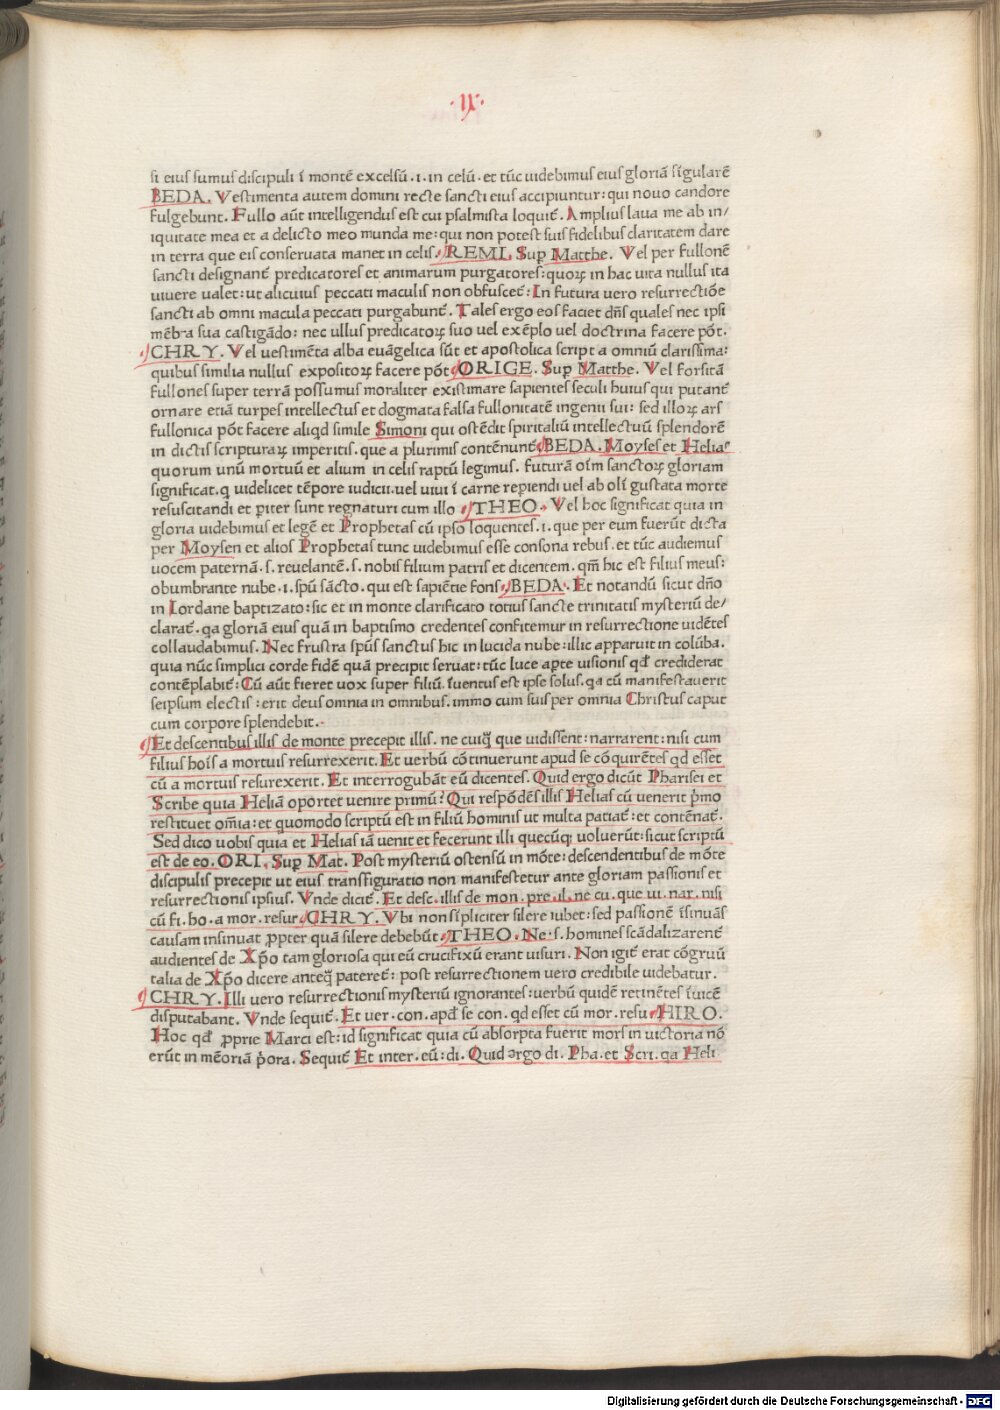 ·IX·
si eius sumus discipuli ī montē excelsū .i. in celū · et tūc uidebimus eius gloriā sīgularē
BEDA. Vestimenta autem domini recte sancti eius accipiuntur: qui nouo candore
fulgebunt. Fullo aūt intelligendus est cui psalmista loquit̄. Amplius laua me ab in/
iquitate mea et a delicto meo munda me: qui non potest suis fidelibus claritatem dare
in terra que eis conseruata manet in celis. REMI. Suꝑ Matthe. Vel per fullonē
sancti designant̄ predicatores et animarum purgatores: quoꝝ in hac uita nullus ita
uiuere ualet: ut alicuius peccati maculis non obfuscet̄: In futura uero resurrectiōe
sancti ab omni macula peccati purgabunt̄. Tales ergo eos faciet dn̄s quales nec ipsi
mēbra sua castigādo: nec ullus predicatoꝝ suo uel exēplo uel doctrina facere pōt.
CHRY. Vel uestimēta alba euāgelica sūt et apostolica scripta omniū clarissima:
quibus similia nullus expositoꝝ facere pōt ORIGE. Suꝑ Matthe. Vel forsitā
fullones super terrā possumus moraliter existimare sapientes seculi huius qui putant̄
ornare etiā turpes intellectus et dogmata falsa fullonitatē ingenii sui: sed illoꝝ ars
fullonica pōt facere aliqd simile Simoni qui ostēdit spiritaliū intellectuū splendorē
in dictis scripturaꝝ imperitis. que a plurimis contēnunt̄ BEDA. Moyses et Helias
quorum unū mortuū et alium in celis raptū legimus. futurā oīm sanctoꝝ gloriam
significat. q uidelicet tēpore iudicii. uel uiui ī carne reperiendi uel ab olī gustata morte
resuscitandi et piter sunt regnaturi cum illo THEO. Vel hoc significat quia in
gloria uidebimus et legē et Prophetas cū ipso loquentes .i. que per eum fuerūt dicta
per Moysen et alios Prophetas tunc uidebimus esse consona rebus . et tūc audiemus
uocem paternā .s. reuelantē .s. nobis filium patris et dicentem. qm̄ hic est filius meus:
obumbrante nube .i. spū sācto . qui est sapiētie fons BEDA. Et notandū sicut dn̄o
in Iordane baptizato: sic et in monte clarificato totius sancte trinitatis mysteriū de/
clarat̄. qa gloriā eius quā in baptismo credentes confitemur in resurrectione uidētes
collaudabimus. Nec frustra spūs sanctus hic in lucida nube: illic apparuit in colūba.
quia nūc simplici corde fidē quā precipit seruat: tūc luce aꝑte uisionis qđ crediderat
contēplabit̄: Cū aūt fieret uox super filiū. īuentus est ipse solus. qa cū manifestauerit
seipsum electis: erit deus omnia in omnibus. immo cum suis per omnia Christus caput
cum corpore splendebit.
Et descentibus illis de monte precepit illis. ne cuiꝙ que uidissent: narrarent: nisi cum
filius hoīs a mortuis resurrexerit. Et uerbū cōtinuerunt apud se cōquirētes qđ esset
cū a mortuis resurexerit. Et interrogubāt eū dicentes. Quid ergo dicūt Pharisei et
Scribe quia Heliā oportet uenire primū? Qui respōdēs illis Helias cū uenerit p̄mo
restituet om̄ia: et quomodo scriptū est in filiū hominis ut multa patiat̄: et contēnat̄.
Sed dico uobis quia et Helias iā uenit et fecerunt illi quecūq; uoluerūt: sicut scriptū
est de eo. ORI. Suꝑ Mat. Post mysteriū ostensū in mōte: descendentibus de mōte
discipulis precepit ut eius transfiguratio non manifestetur ante gloriam passionis et
resurrectionis ipsius. Vnde dicit̄. Et desc. illis de mon. pre. il. ne cu. que ui. nar. nisi
cū fi. ho. a mor. resur CHRY. Vbi non sīpliciter silere iubet: sed passionē īsinuās
causam insinuat ꝓpter quā silere debebūt THEO. Ne .s. homines scādalizarent̄
audientes de Xp̄o tam gloriosa qui eū crucifixū erant uisuri. Non igit̄ erat cōgruū
talia de Xp̄o dicere anteꝙ pateret̄: post resurrectionem uero credibile uidebatur.
CHRY. Illi uero resurrectionis mysteriū ignorantes: uerbū quidē retinētes īuicē
disputabant. Vnde sequit̄. Et uer. con. apđ se con. qđ esset cū mor. resu HIRO.
Hoc qđ ꝓprie Marci est: id significat quia cū absorpta fuerit mors in uictoria nō
erūt in mēoriā p̄ora. Sequit̄ Et inter. eū: di. Quid ergo di. Pha. et Scri. qa Heli
Digitalisierung gefördert durch die Deutsche Forschungsgemeinschaft - DFG